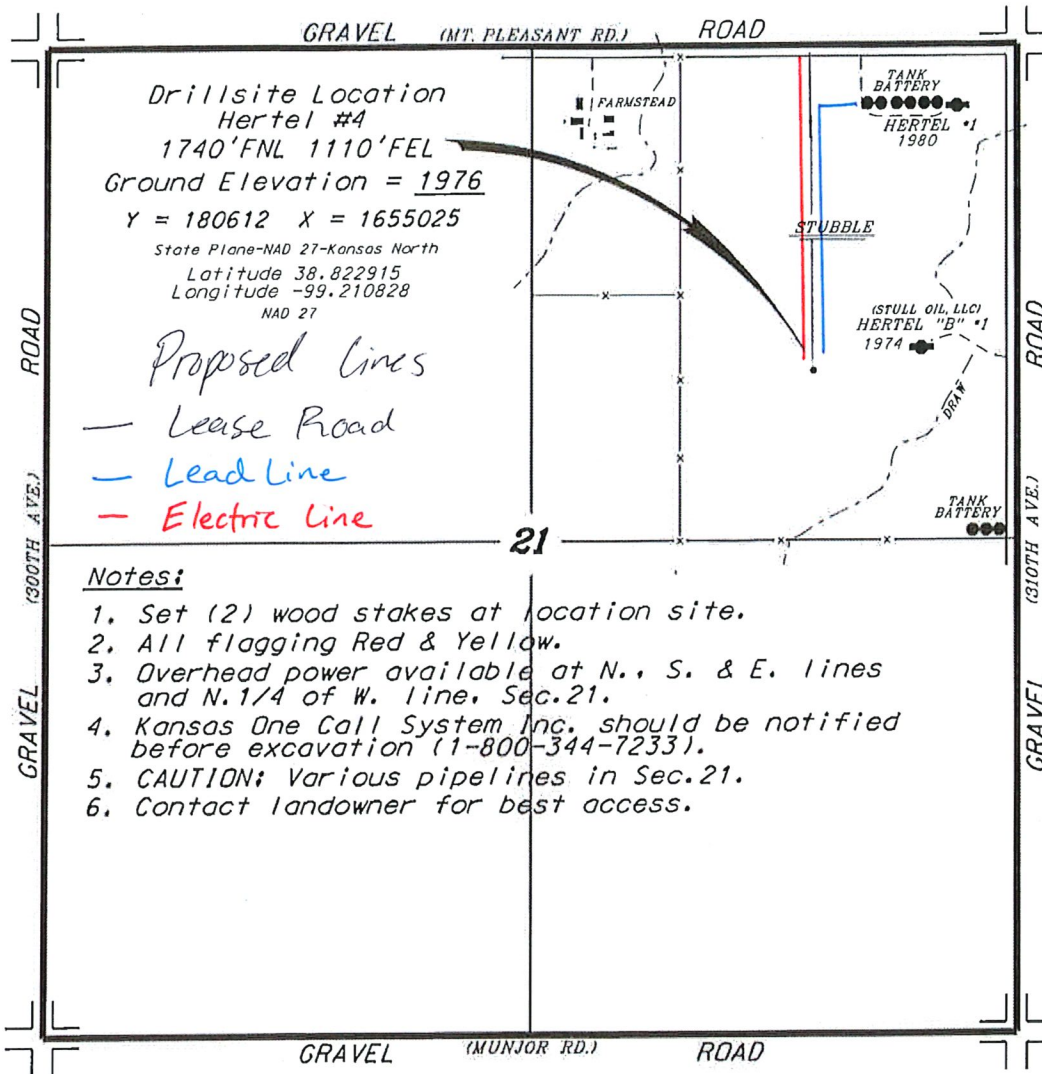 GRAVEL (MT. PLEASANT RD.) ROAD
Drillsite Location
Hertel #4
1740'FNL 1110'FEL
Ground Elevation = 1976
Y = 180612 X = 1655025
State Plane-NAD 27-Kansas North
Latitude 38.822915
Longitude -99.210828
NAD 27
Proposed Lines
— Lease Road
— Lead Line
— Electric Line
FARMSTEAD
TANK
BATTERY
HERTEL #1
1980
STUBBLE
(STULL OIL, LLC)
HERTEL "B" #1
1974
DRAW
TANK
BATTERY
21
GRAVEL (300TH AVE.) ROAD
GRAVEL (310TH AVE.) ROAD
Notes:
1. Set (2) wood stakes at location site.
2. All flagging Red & Yellow.
3. Overhead power available at N., S. & E. lines
and N.1/4 of W. line, Sec.21.
4. Kansas One Call System Inc. should be notified
before excavation (1-800-344-7233).
5. CAUTION: Various pipelines in Sec.21.
6. Contact landowner for best access.
GRAVEL (MUNJOR RD.) ROAD